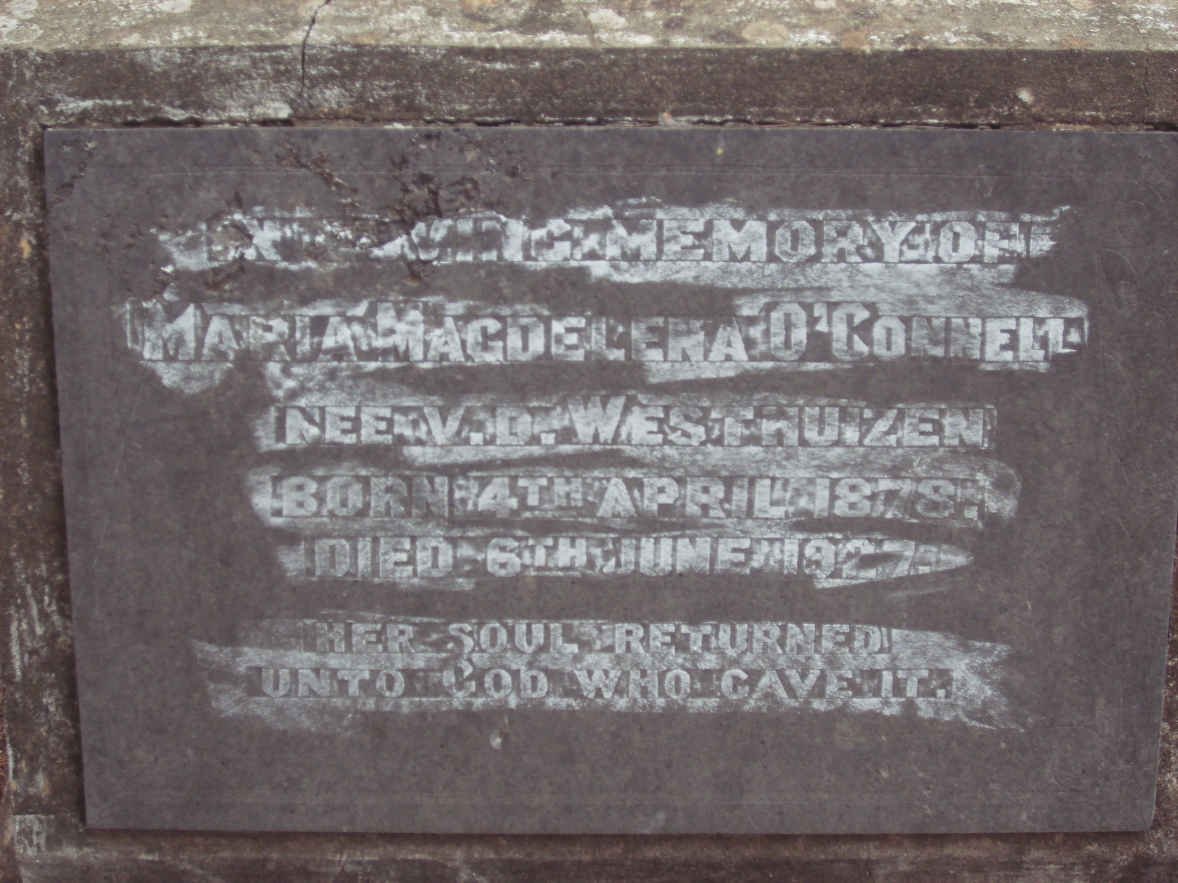 IN LOVING MEMORY OF
MARIA MAGDELENA O'CONNELL
NEE V.D. WESTHUIZEN
BORN 4TH APRIL 1878.
DIED 6TH JUNE 1927.
HER SOUL RETURNED
UNTO GOD WHO GAVE IT.